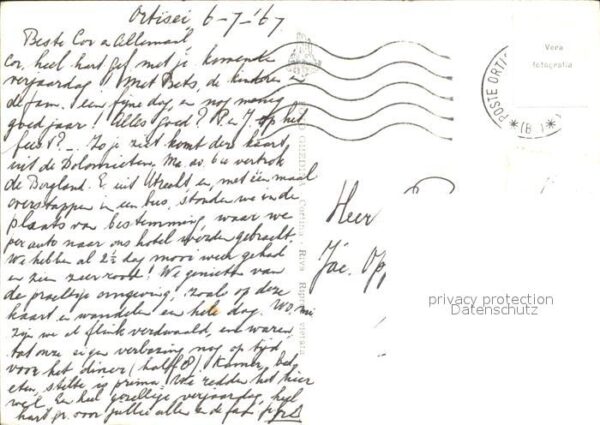 Ortisei 6-7-'67
Beste Cor en Allemaal
Cor, heel hart. gef. met je komende
verjaardag! Met Bets, de kinderen
de fam. een fijne dag, en nog menig
goed jaar! Alles Goed? P. en J. op het
feest? — Zo je ziet komt deze kaart
uit de Dolomieten. Ma. av. 6 u vertrok
de Bergland. E. uit Utrecht en, met één maal
overstappen in een bus, stonden we in de
plaats van bestemming, waar we
per auto naar ons hotel werden gebracht.
We hebben al 2½ dag mooi weer gehad
en zien zeer rood! We genieten van
de prachtige omgeving, zoal op deze
kaart en wandelen en hele dag. Wo. mi
zijn we al flink verdwaald, en waren
tot onze eigen verbazing nog op tijd
voor het diner (half 8) Kamer, bed
eten, stilte is prima. We redden het hier
wel. En heel gezellige verjaardag, heel
hart. gr. voor jullie allen en de fam
Heer
Jac. Op
Vera
fotografia
POSTE ORTI
(B
privacy protection
Datenschutz